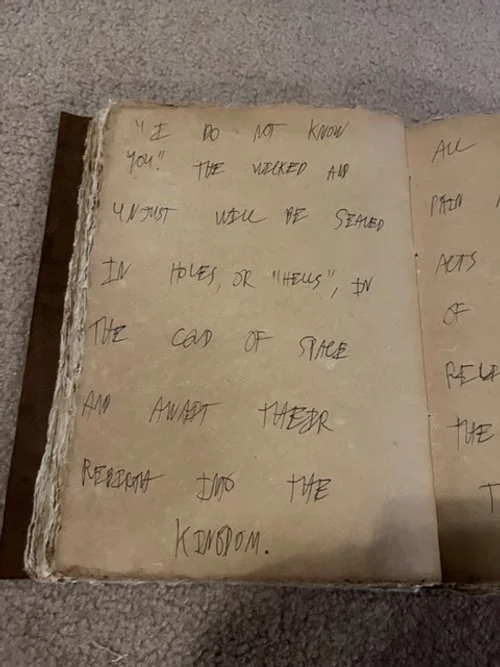 "I DO NOT KNOW
YOU." THE WICKED AND
UNJUST WILL BE SEALED
IN HOLES, OR "HELLS", IN
THE COLD OF SPACE
AND AWAIT THEIR
REBIRTH INTO THE
KINGDOM.
ALL
PAIN
ACTS
OF
THE